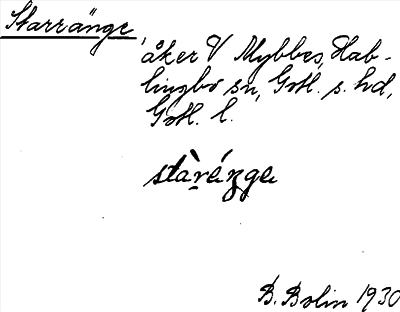 Starränge,
åker V Mybbes, Hab-
lingbo sn, Gotl. s. hd,
Gotl. l.
stàrę́nge
B. Bolin 1930